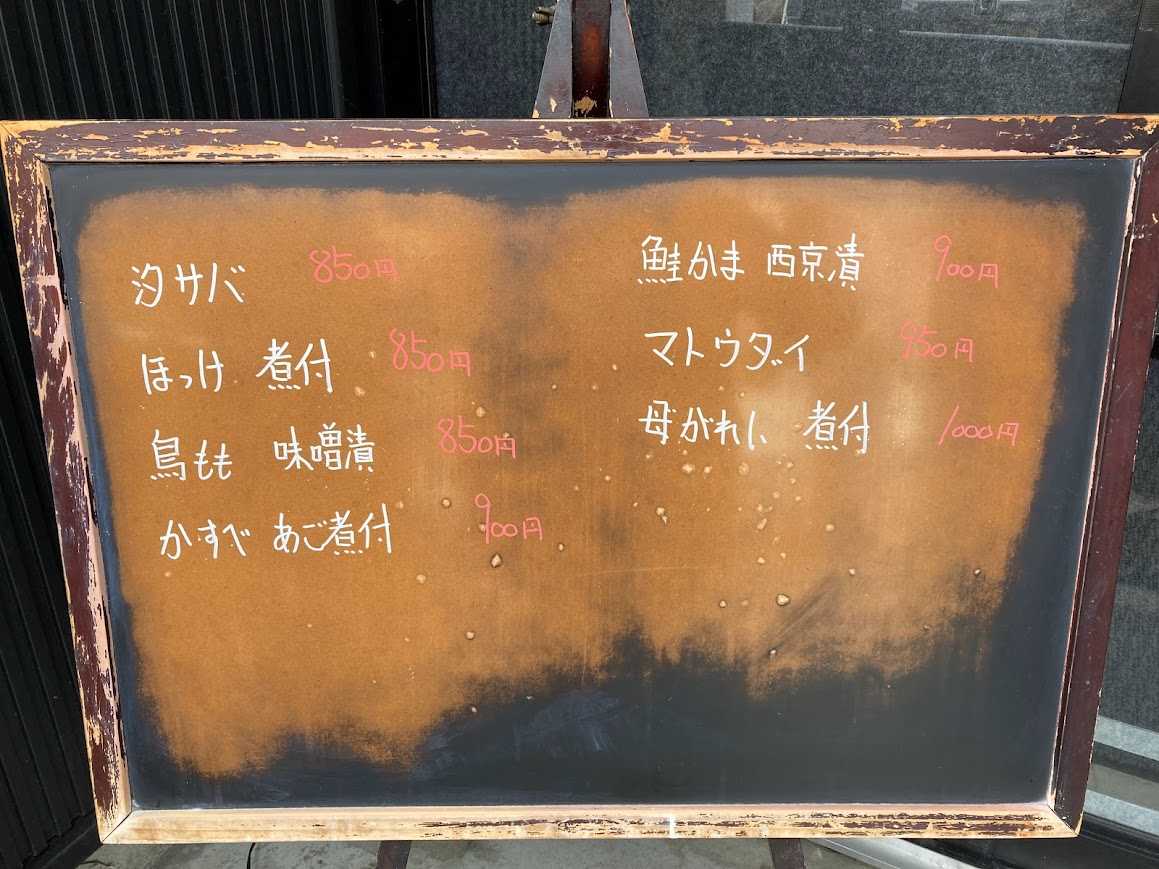 汐サバ 850円
ほっけ 煮付 850円
鳥もも 味噌漬 850円
かすべ あご煮付 900円
鮭かま 西京漬 900円
マトウダイ 950円
母がれい 煮付 1000円